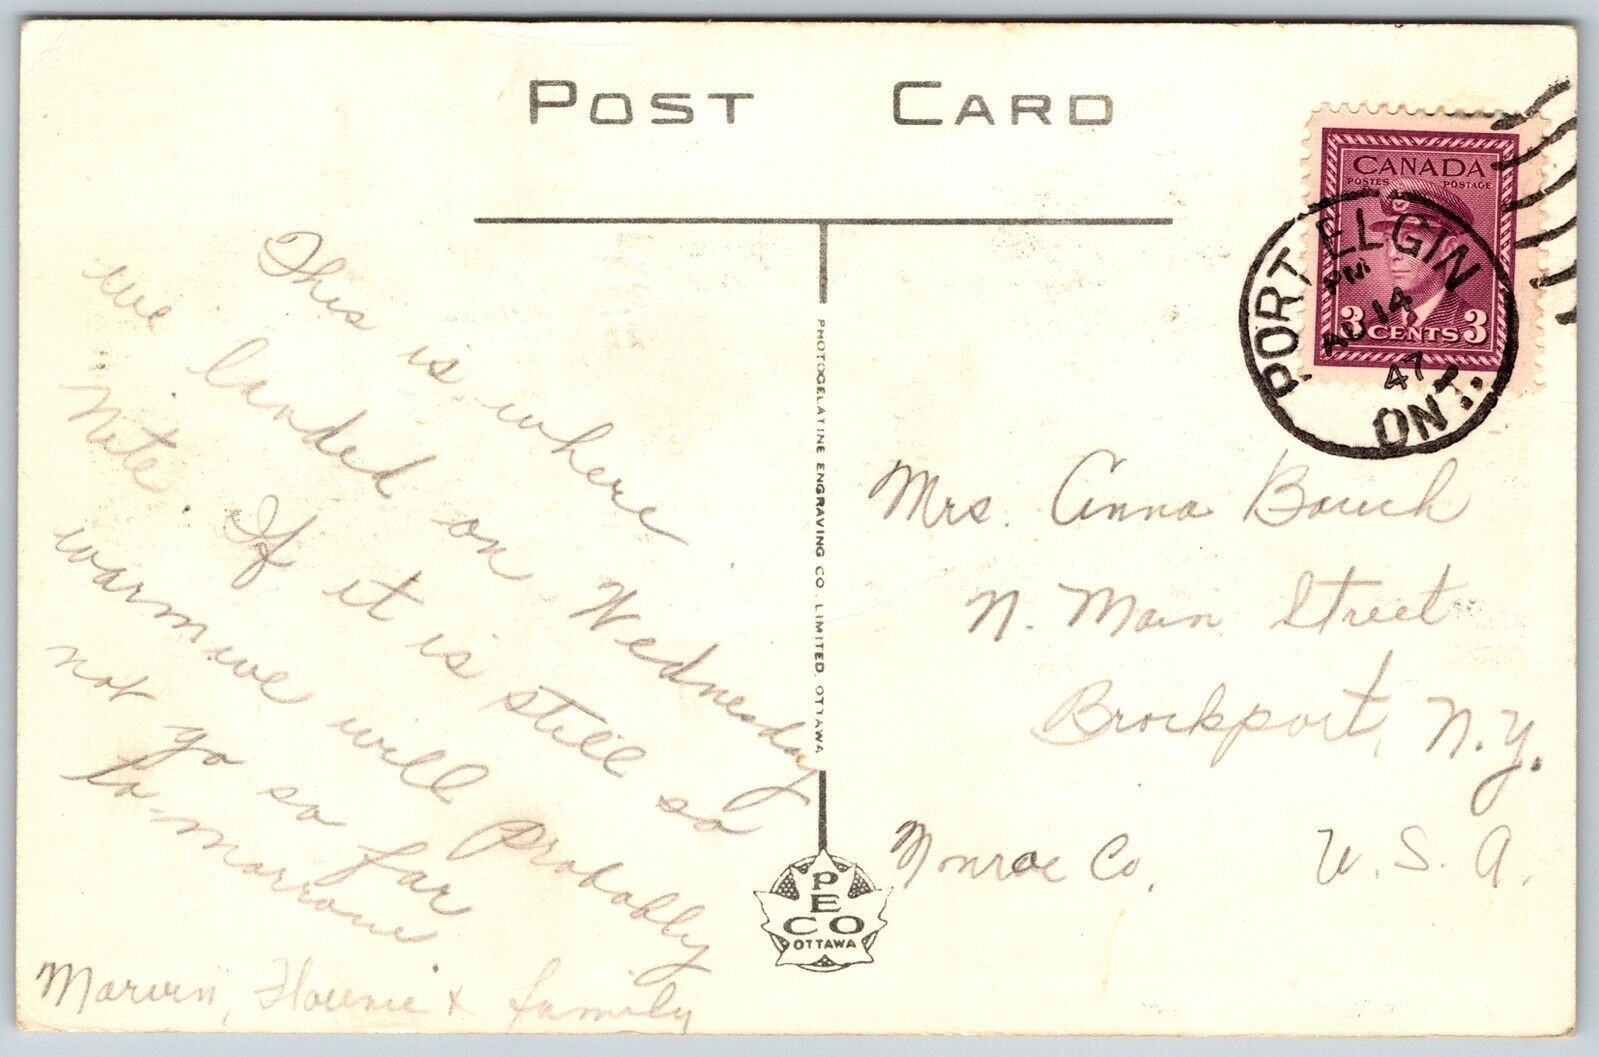 POST CARD
CANADA
POSTES POSTAGE
3 CENTS 3
PORT ELGIN
PM
AU 14
47
ONT.
This is where
we landed on Wednesday
Nite. If it is still so
warm we will Probably
not go so far
to-morrow
Marvin, & family
PHOTOGELATINE ENGRAVING CO. LIMITED, OTTAWA
PECO
OTTAWA
Mrs. Anna
N. Main Street
Brockport, N.Y.
Monroe Co. U. S. A.